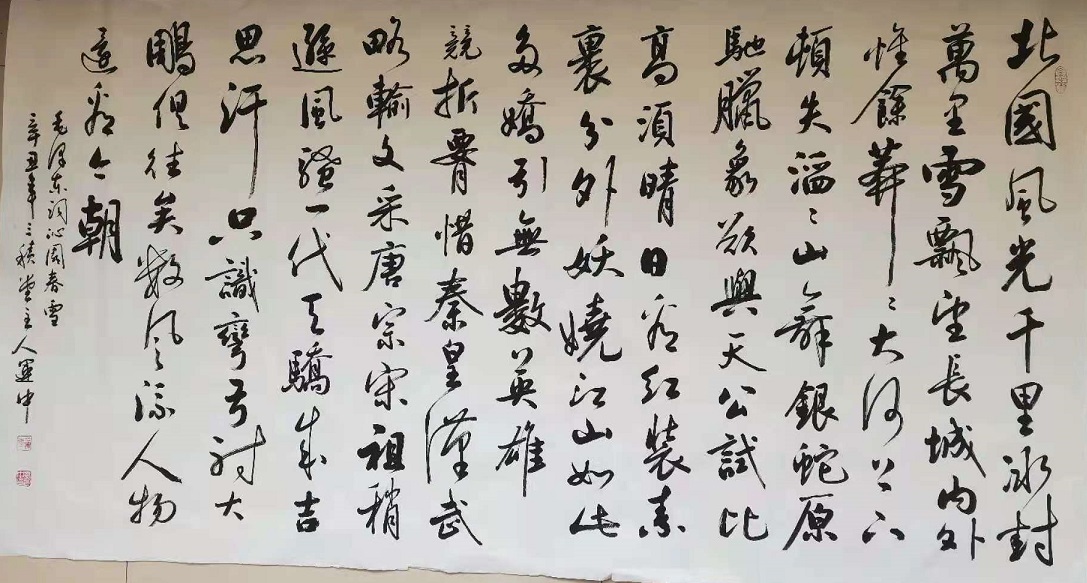 北國風光千里冰封
萬里雪飄望長城内外
惟餘莽〻大河上下
頓失滔〻山舞銀蛇原
馳臘象欲與天公試比
高須晴日看紅裝素
裹分外妖嬈江山如此
多嬌引無數英雄
競折腰惜秦皇漢武
略輸文采唐宗宋祖稍
遜風騷一代天驕成吉
思汗只識彎弓射大
鵰俱往矣數風流人物
還看今朝
毛澤東詞沁園春雪
辛丑年三積堂主人運中